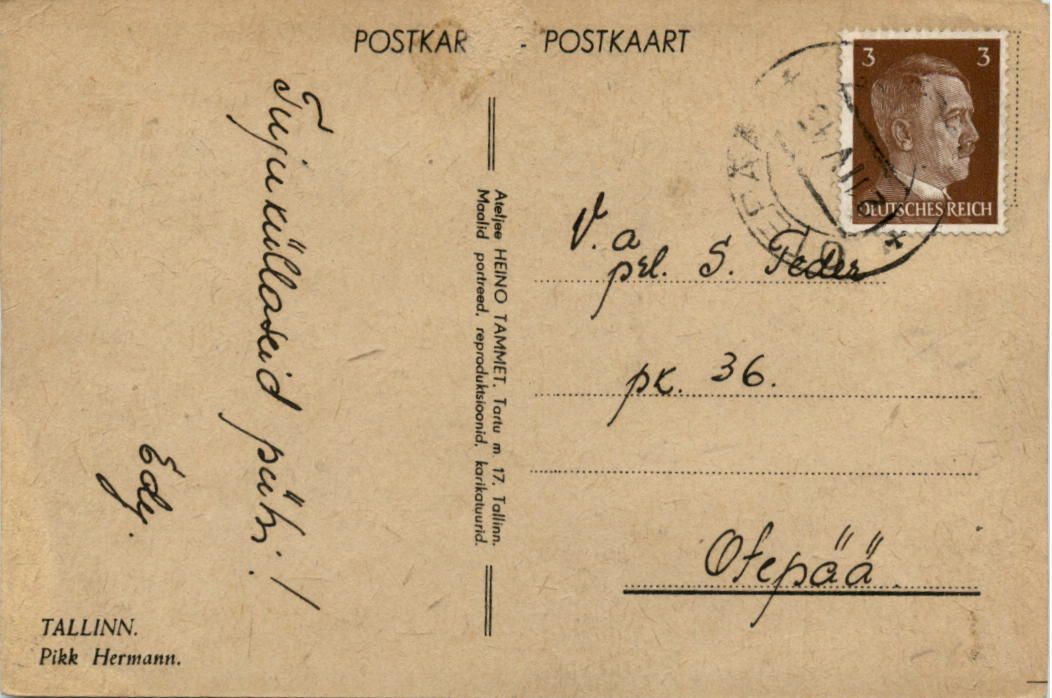 POSTKAR - POSTKAART
3 3
DEUTSCHES REICH
Tujuküllaseid pühi!
Edy.
Ateljee HEINO TAMMET. Tartu m 17. Tallinn.
Maalid portreed, reproduktsioonid, karikatuurid.
V. a
prl. S. Feder
pk. 36.
Otepää.
TALLINN.
Pikk Hermann.